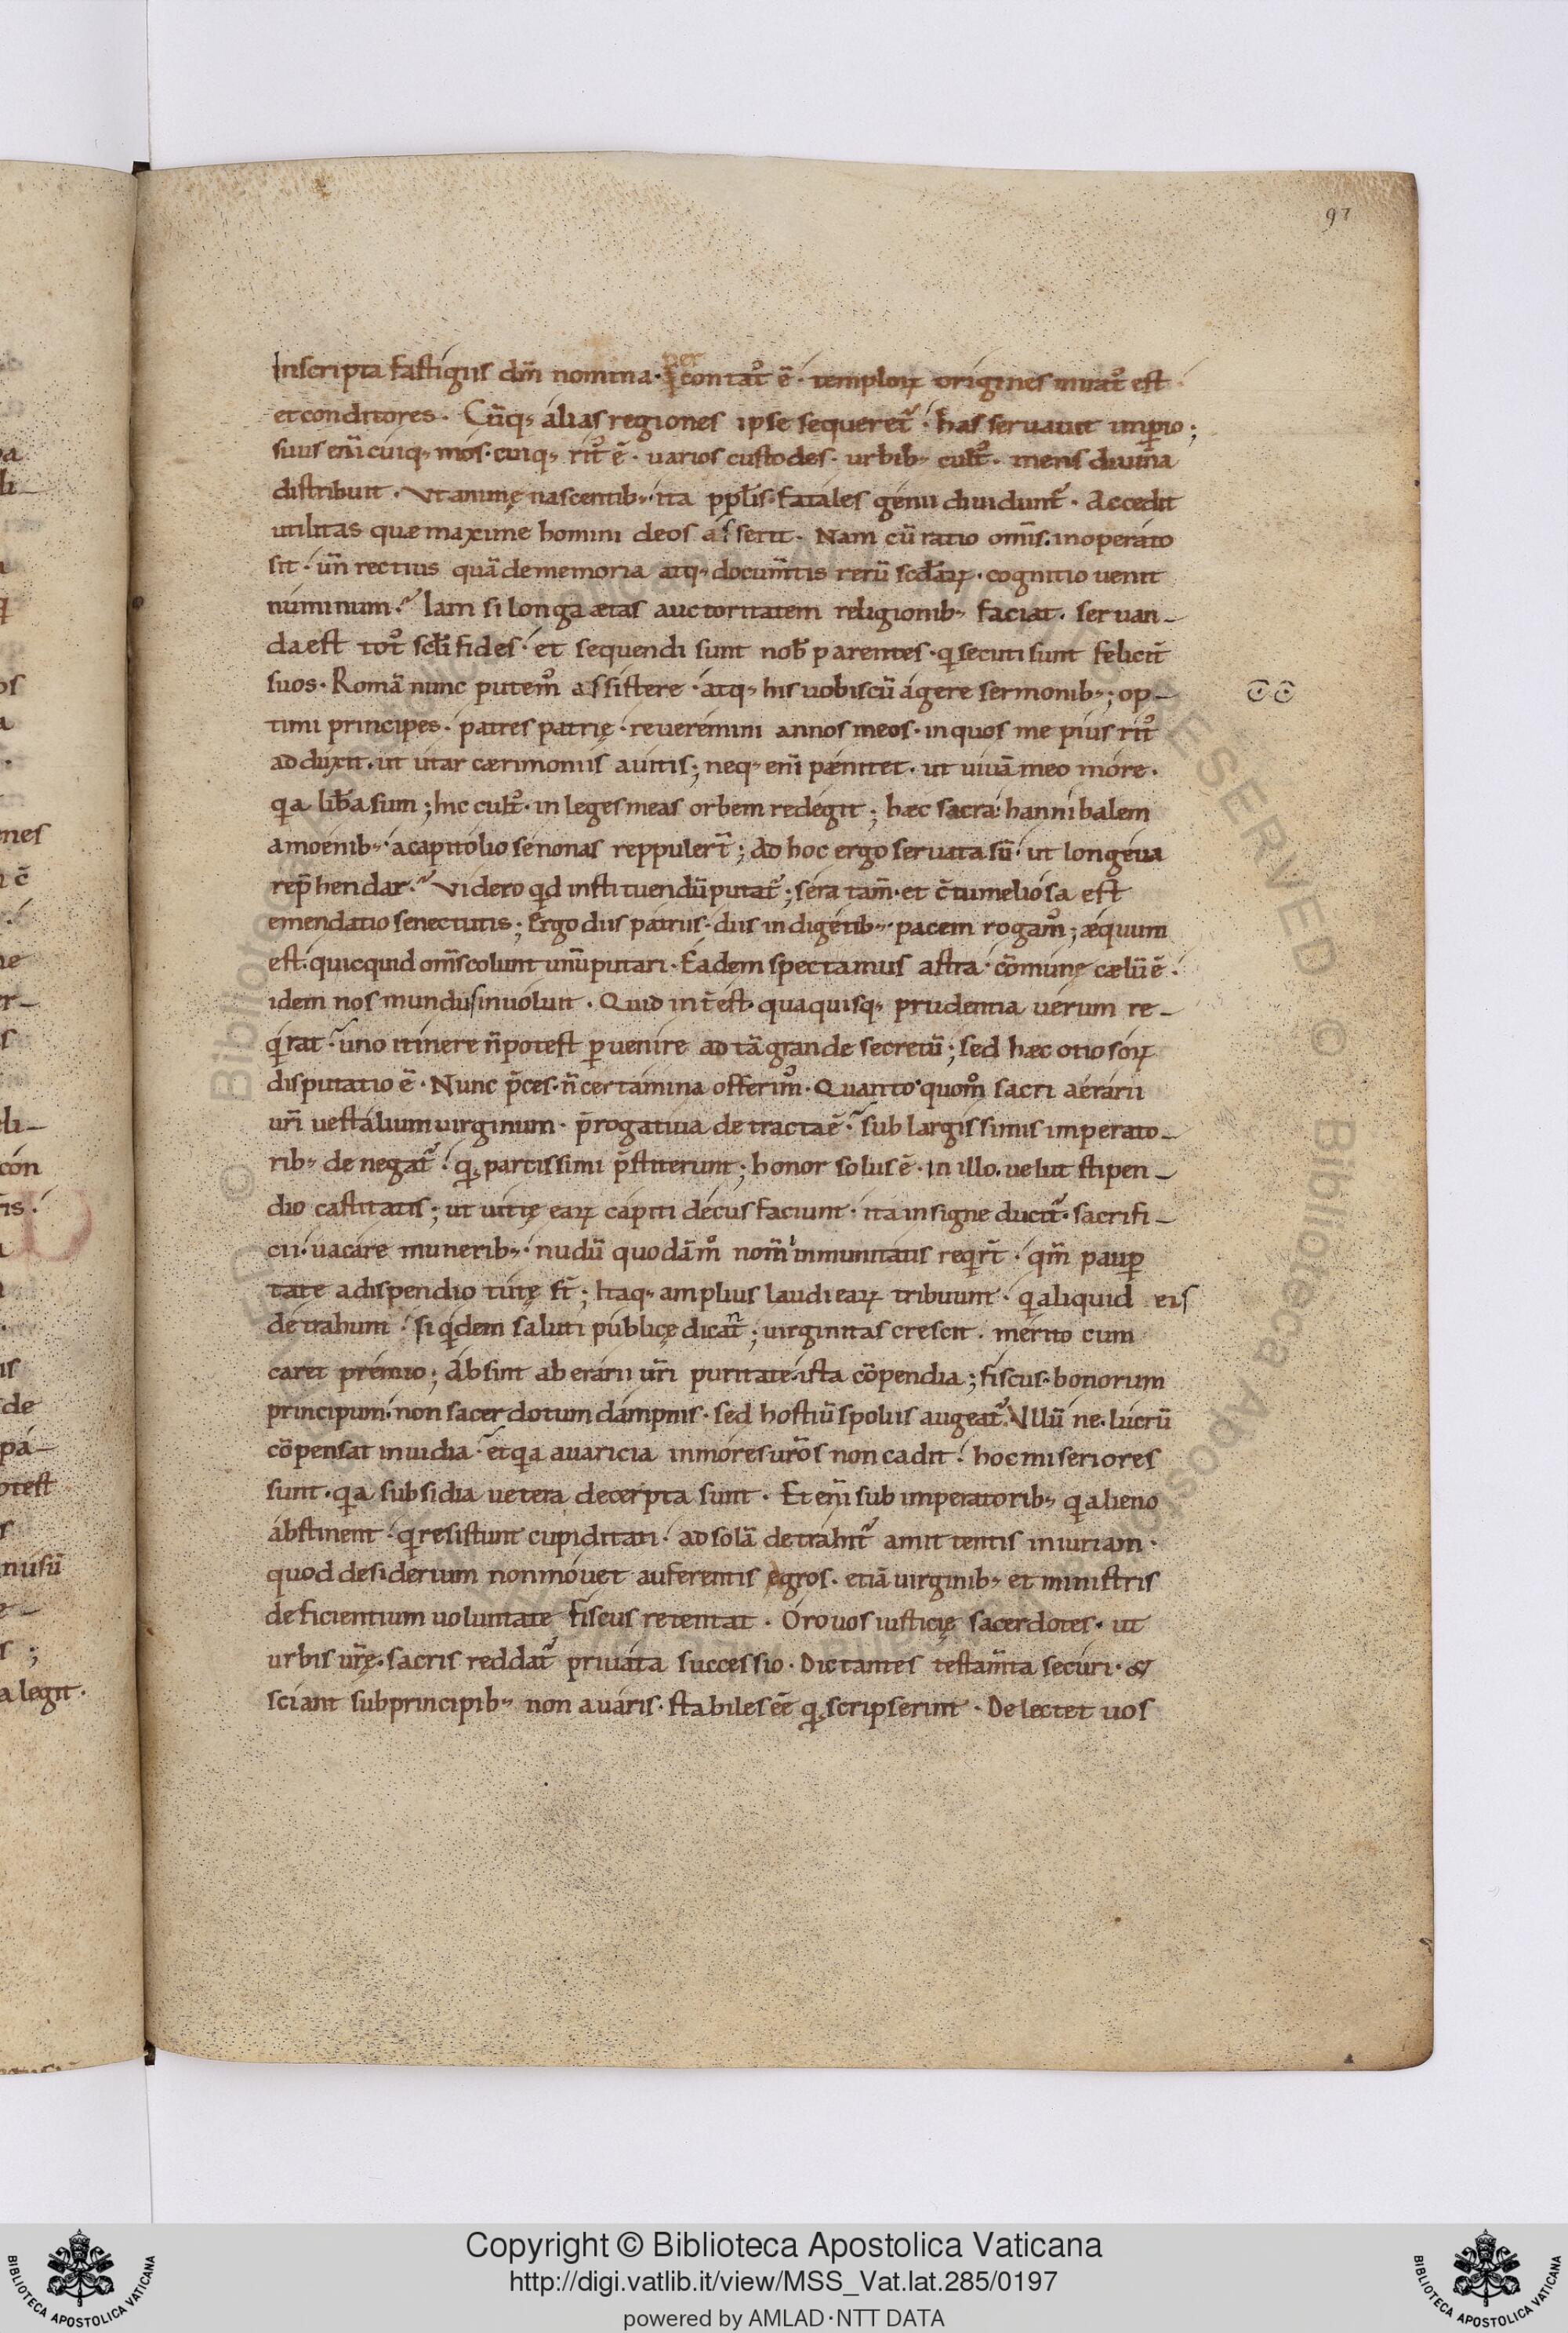 97
Inscripta fastigiis dm̄ nomina · ꝑcontat᷒ ē · temploꝝ origines mirat᷒ est ·
per
et conditores · Cūq; alias regiones ipse sequeret᷑ · has servavit imꝑio ;
suus eni᷒ cuiq; mos · cuiq; rit᷒ ē · varios custodes · urbib; cult᷒ · mens divina
distribuit · Ut animę nascentib; · ita ppl̄is · fatales genii dividunt᷑ · Accedit
utilitas quæ maxime homini deos asserit · Nam cū ratio om̄is · in operato
sit · un̄ rectius quā de memoria atq; docum̄tis rerū scd̄aꝝ · cognitio venit
numinum ·᷉ Iam si longa ætas auctoritatem religionib; faciat · servan-
da est tot᷒ scl̄i fides · et sequendi sunt nob̄ parentes · q secuti sunt felicit̄
suos · Romā nunc putem᷒ assistere · atq; his vobiscū agere sermonib; ; op-
timi principes · patres patrię · reveremini annos meos · in quos me pius rit᷒
adduxit · ut utar cærimoniis avitis ; neq; eni᷒ pænitet · ut vivā meo more ·
qa lib̄a sum ; hic cult᷒ · in leges meas orbem redegit ; hæc sacra · hannibalem
a moenib; · a capitolio senonas reppuler̄t ; Ad hoc ergo servata sū · ut longeva
rep̄hendar ·᷉ Videro qd instituendū putat᷑ ; sera tam̄ · et c̄tumeliosa est
emendatio senectutis ; Ergo diis patriis · diis indigetib; · pacem rogam᷒ ; æquum
est · quicquid om̄s colunt unū putari · Eadem spectamus astra · cōmunę cælū ē ·
idem nos mundus involvit · Quid int̄est · qua quisq; prudentia verum re-
qirat ·᷉ uno itinere n̄ potest ꝑvenire ad tā grande secretū ; sed hæc otiosoꝝ
disputatio ē · Nunc p̄ces · n̄ certamina offerim᷒ · Quanto · quom᷒ sacri aerarii
ur̄i vestalium virginum · p̄rogativa detracta ē ·᷉ sub largissimis imperato-
rib; denegat᷑ · q partissimi p̄stiterunt ; honor solus ē · in illo · velut stipen-
dio castitatis ; ut vittę eaꝝ capiti decus faciunt · ita insigne ducit᷑ · sacrifi-
cii · vacare munerib; · nudū quodā m᷒ nom̄ inmunitatis reqir̄t · qm̄ pauꝑ
tate a dispendio tutę st̄ ; Itaq; amplius laudi eaꝝ tribuunt · q aliquid eis
detrahunt · si qidem saluti publicę dicat᷑ ; virginitas crescit · merito cum
caret premio ; Absint ab erarii ur̄i puritate · ista cōpendia ; fiscus · bonorum
principum · non sacerdotum dampnis · sed hostiū spoliis augeat᷑ Ullū ne · lucrū
cōpensat invidia ·᷉ et qa avaricia in mores ur̄os non cadit · hoc miseriores
sunt · qa subsidia vetera decerpta sunt · Et eni᷒ sub imperatorib; q alieno
abstinent · q resistunt cupiditati · ad solā detrahit᷑ amittentis iniuriam ·
quod desiderium non movet auferentis ęgros · etiā virginib; et ministris
deficientium voluntate fiscus retentat · Oro vos iusticię sacerdotes · ut
urbis ur̄ę · sacris reddat᷑ privata successio · Dictantes testam̄ta securi · &
sciant sub principib; non avaris · stabiles eē q scripserint · Delectet vos
Copyright © Biblioteca Apostolica Vaticana
http://digi.vatlib.it/view/MSS_Vat.lat.285/0197
powered by AMLAD·NTT DATA